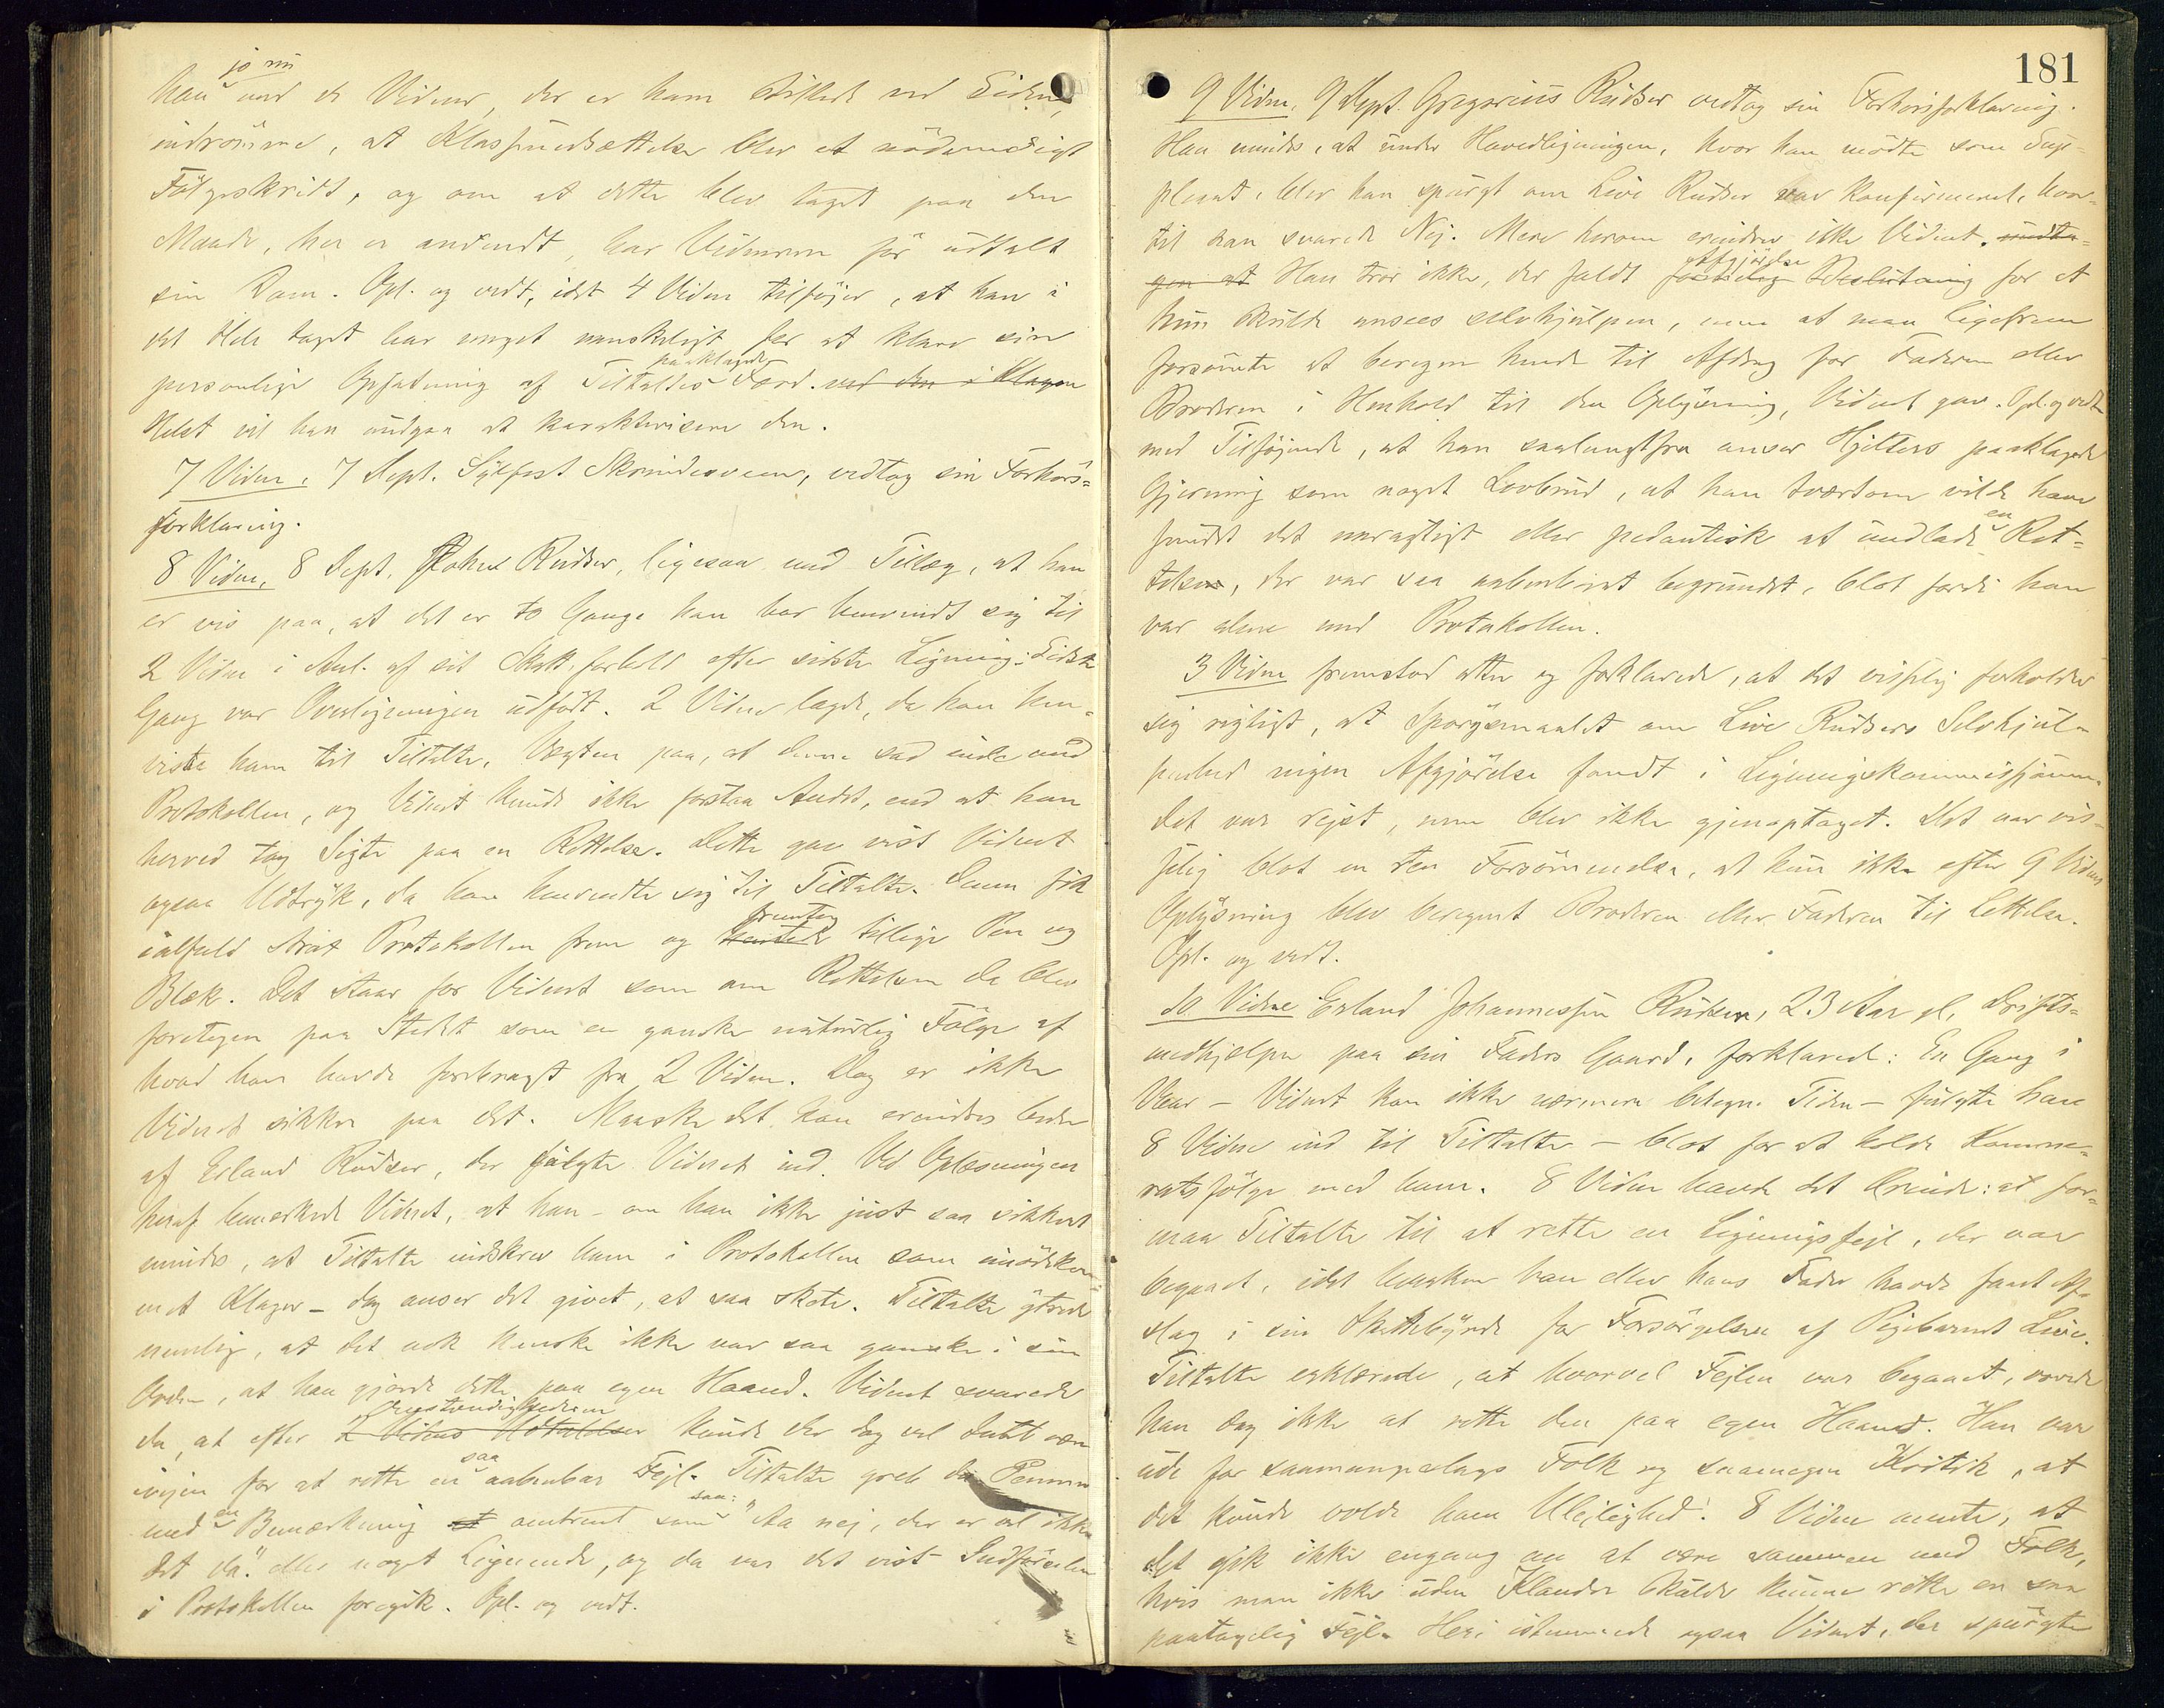 jo nu
han med de Vidner, der er ham stillede ved Siden,
indrømme, at Klasseinedsættelse blev et nødvendigt
Følgeskridt, og om at dette blev taget paa den
Maade, her er anvendt, har Vidnerne før udtalt
sin Dom. Opl. og vedt., idet 4 Vidne tilføjer, at han i
det Hele taget har meget vanskeligt for at klare sin
paaklagede
personlige Opfatning af Tiltaltes Færd. ved den i Klagen
Helst vil han undgaa at karakterisere den.
7 Vidne, 7 Dept. Sylfest Skrindesveen, vedtog sin Forhørs=
forklaring.
8 Vidne, 8 Dept. Rudser, ligesaa med Tillæg, at han
er vis paa, at det er to Gange han har henvendt sig til
2 Vidne i Anl. af sit Skatteforhold efter sidste Ligning: Sidste
Gang var Overligningen udført. 2 Vidne lagde, da han hen-
viste ham til Tiltalte, Vægten paa, at denne sad inde med
Protokollen, og Vidnet kunde ikke forstaa Andet, end at han
herved tog Sigte paa en Rettelse. Dette gav vist Vidnet
ogsaa Udtryk, da han henvendte sig til Tiltalte. Denne fik
fremtog
ialfald strax Protokollen frem og hentede tillige Pen og
Blæk. Det staar for Vidnet som om Rettelsen da blev
foretagen paa Stedet som en ganske naturlig Følge af
hvad han havde forebragt fra 2 Vidne. Dog er ikke
Vidnet sikker paa det. Maaske det kan erindres bedre
af Erland Rudser, der fulgte Vidnet ind. Ved Oplæsningen
heraf bemærkede Vidnet, at han – om han ikke just saa sikkert
mindes, at Tiltalte indskrev ham i Protokollen som imødekom-
met Klager – dog anser det givet, at saa skete. Tiltalte ytrede
nemlig, at det nok kanske ikke var saa ganske i sin
Orden, at han gjorde dette paa egen Haand. Vidnet svarede
Omstændighederne
da, at efter 2 Vidnes Udtalelser kunde der dog vel Intet være
saa
ivejen for at rette en aabenbar Fejl. Tiltalte greb da Pennen
en saa:
med Bemærkning et omtrent som "Aa nej, der er vel ikke
det da." eller noget Lignende, og da var det vist Indførselen
i Protokollen foregik. Opl. og vedt.
181
9 Vidne, 9 Dept. Gregorius Rudser vedtog sin Forhørsforklaring.
Han mindes, at under Hovedligningen, hvor han mødte som Sup-
pleant, blev han spurgt om Live Rudser var konfirmeret, hvor-
til han svarede Nej. Mere herom erindrer ikke Vidnet. undta-
Afgjørelse
gen at Han tror ikke, der faldt Beslutning for at
hun skulde ansees selvhjulpen, men at man ligefrem
forsømte at beregne hende til Afdrag for Faderen eller
Broderen i Henhold til den Oplysning, Vidnet gav. Opl. og vedt.
med Tilføjende, at han saalangtfra anser Hjeltens paaklagede
Gjerning som noget Lovbrud, at han tværtom vilde have
en
fundet det urigtigt eller pedantisk at undlade Ret=
telsen, der var saa aabenbart begrundet, blot fordi han
var alene med Protokollen.
3 Vidne fremstod atter og forklarede, at det visselig forholder
sig rigtigt, at Spørgsmaalet om Live Rudsers Selvhjul-
penhed ingen Afgjørelse fandt i Ligningskommissjonen.
Det var rejst, men blev ikke gjenoptaget. Det var vis-
selig blot en ren Forsømmelse, at hun ikke efter 9 Vidnes
Oplysning blev beregnet Broderen eller Faderen til Lettelse.
Opl. og vedt.
10 Vidne Erland Johannessøn Rudser, 23 Aar gl., Drifts=
medhjelper paa sin Faders Gaard, forklarede: En Gang i
Vaar – Vidnet kan ikke nærmere betegne Tiden – fulgte han
8 Vidne ind til Tiltalte – blot for at holde Kamme-
ratsfølge med ham. 8 Vidne havde det Ærinde: at for-
maa Tiltalte til at rette en Ligningsfejl, der var
begaaet, idet hverken han eller hans Fader havde faaet Af-
slag i sin Skattebyrde for Forsørgelsen af Pigebarnet Live.
Tiltalte erklærede, at hvorvel Fejlen var begaaet, vovede
han dog ikke at rette den paa egen Haand. Han var
ude for saamangeslags Folk og saamegen Kritik, at
det kunde volde ham Ulejlighed. 8 Vidne mente, at
det gik ikke engang an at være sammen med Folk,
hvis man ikke uden Klander skulde kunne rette en saa
paatagelig Fejl. Heri istemmede ogsaa Vidnet, der spurgte